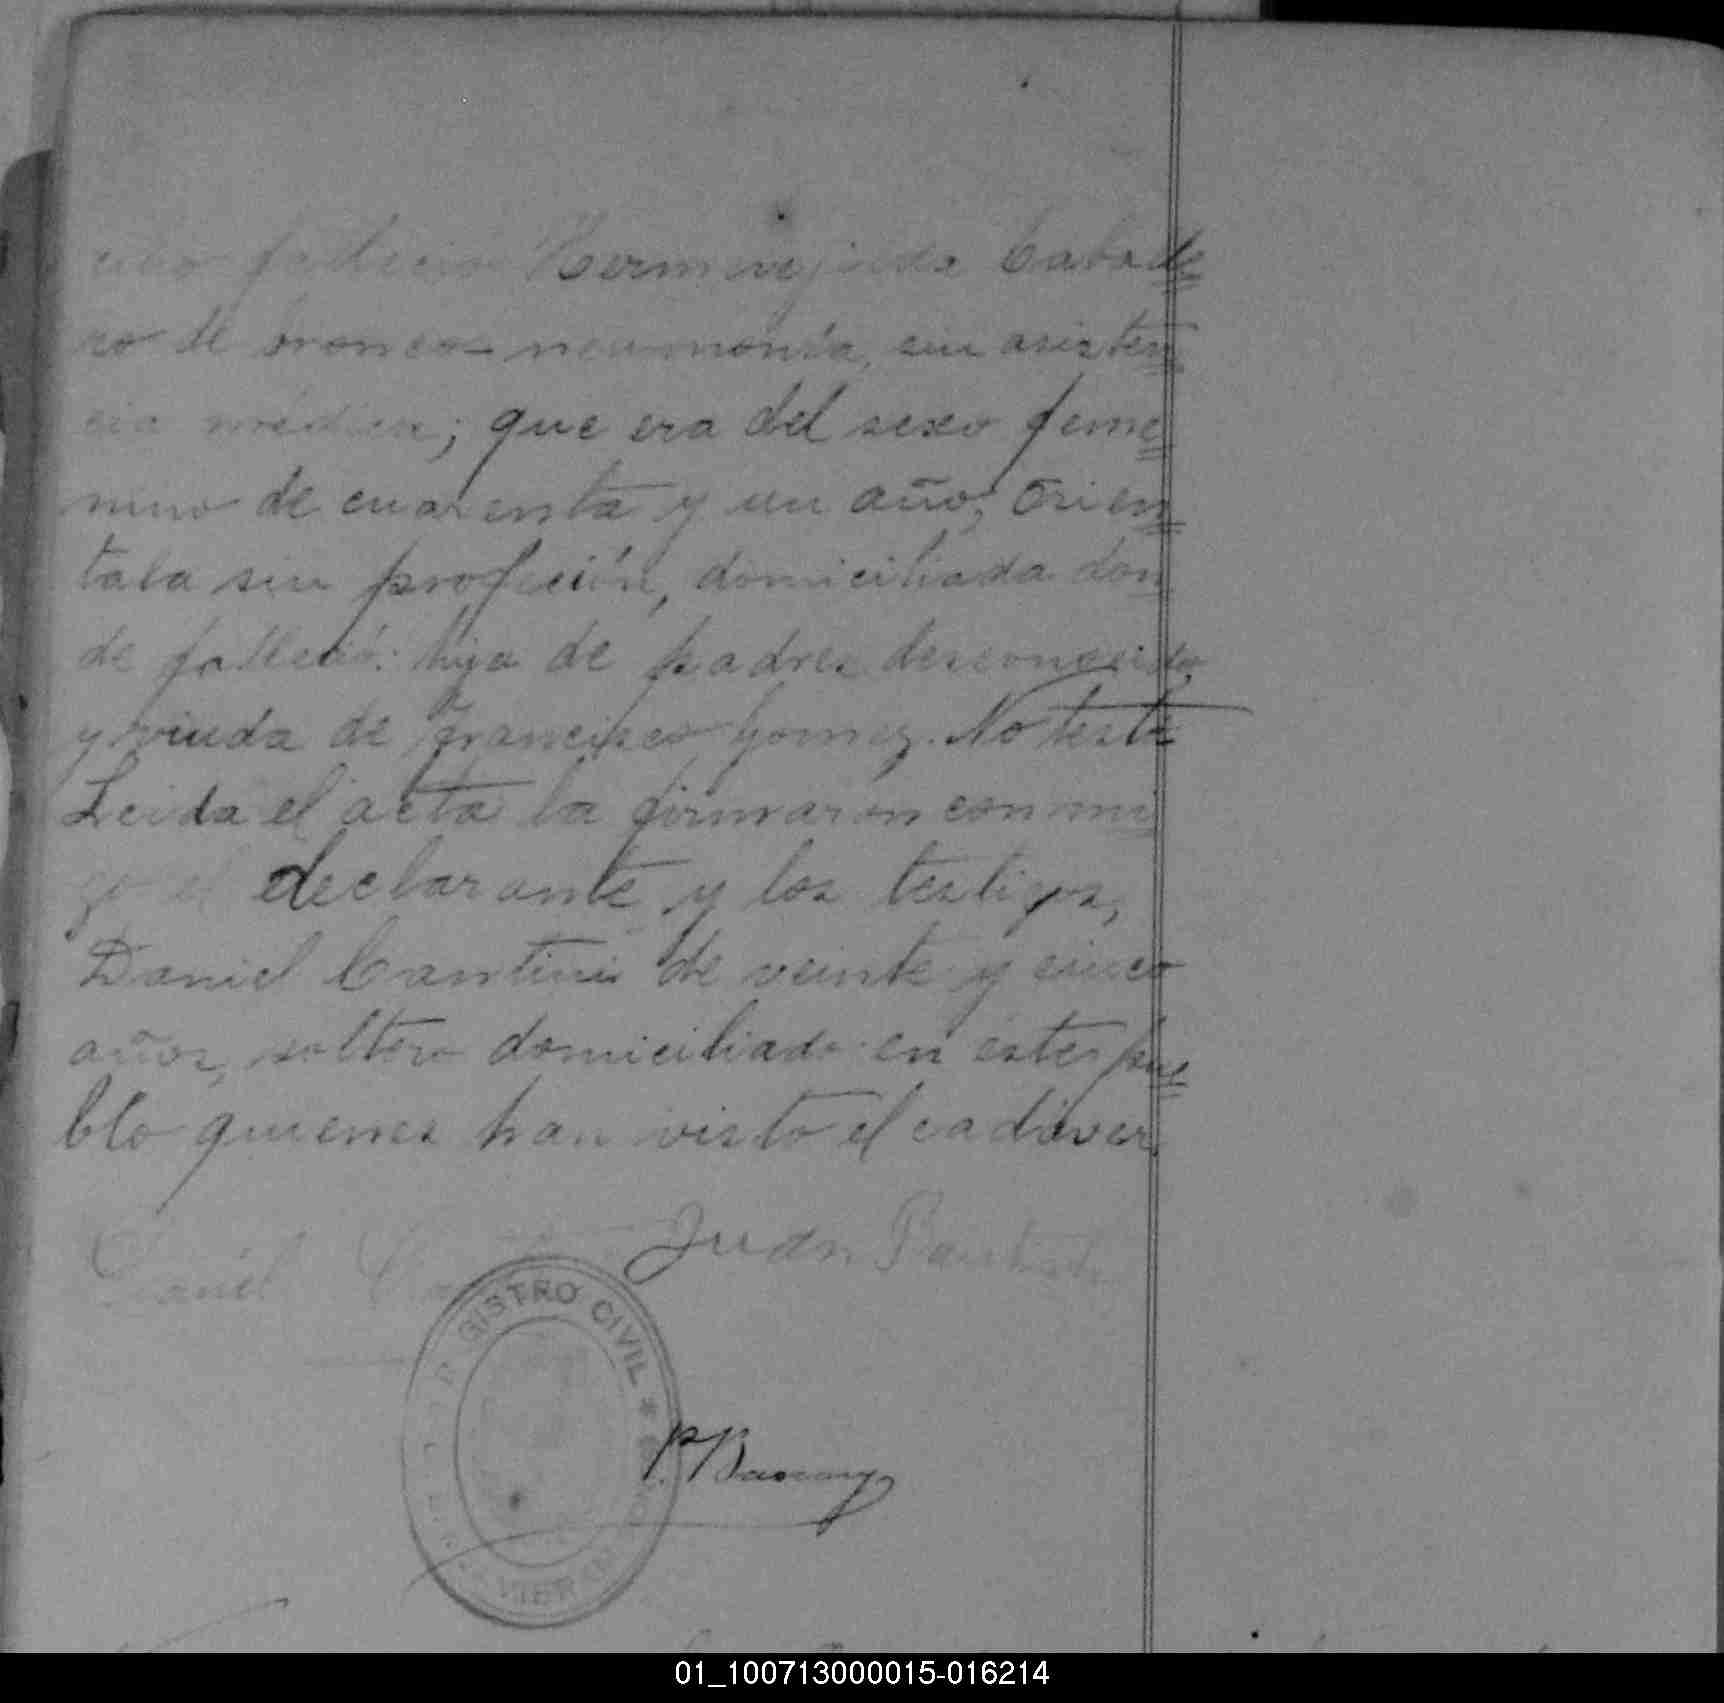 falleció Hermenejilda Cabade
ro de bronco-neumonía, sin asisten
cia médica; que era del sexo feme
nino de cuarenta y un año, Orien
tala sin profeción, domiciliada don
de falleció: hija de padres desconocidos
y viuda de Francisco Gomez. No testó
Leida el acta la firmaron con mi
go el declarante y los testigos,
Daniel Cantini de veinte y cinco
años, soltero domiciliado en este pue
blo quienes han visto el cadáver
Juan
Daniel
REGISTRO CIVIL
01_100713000015-016214